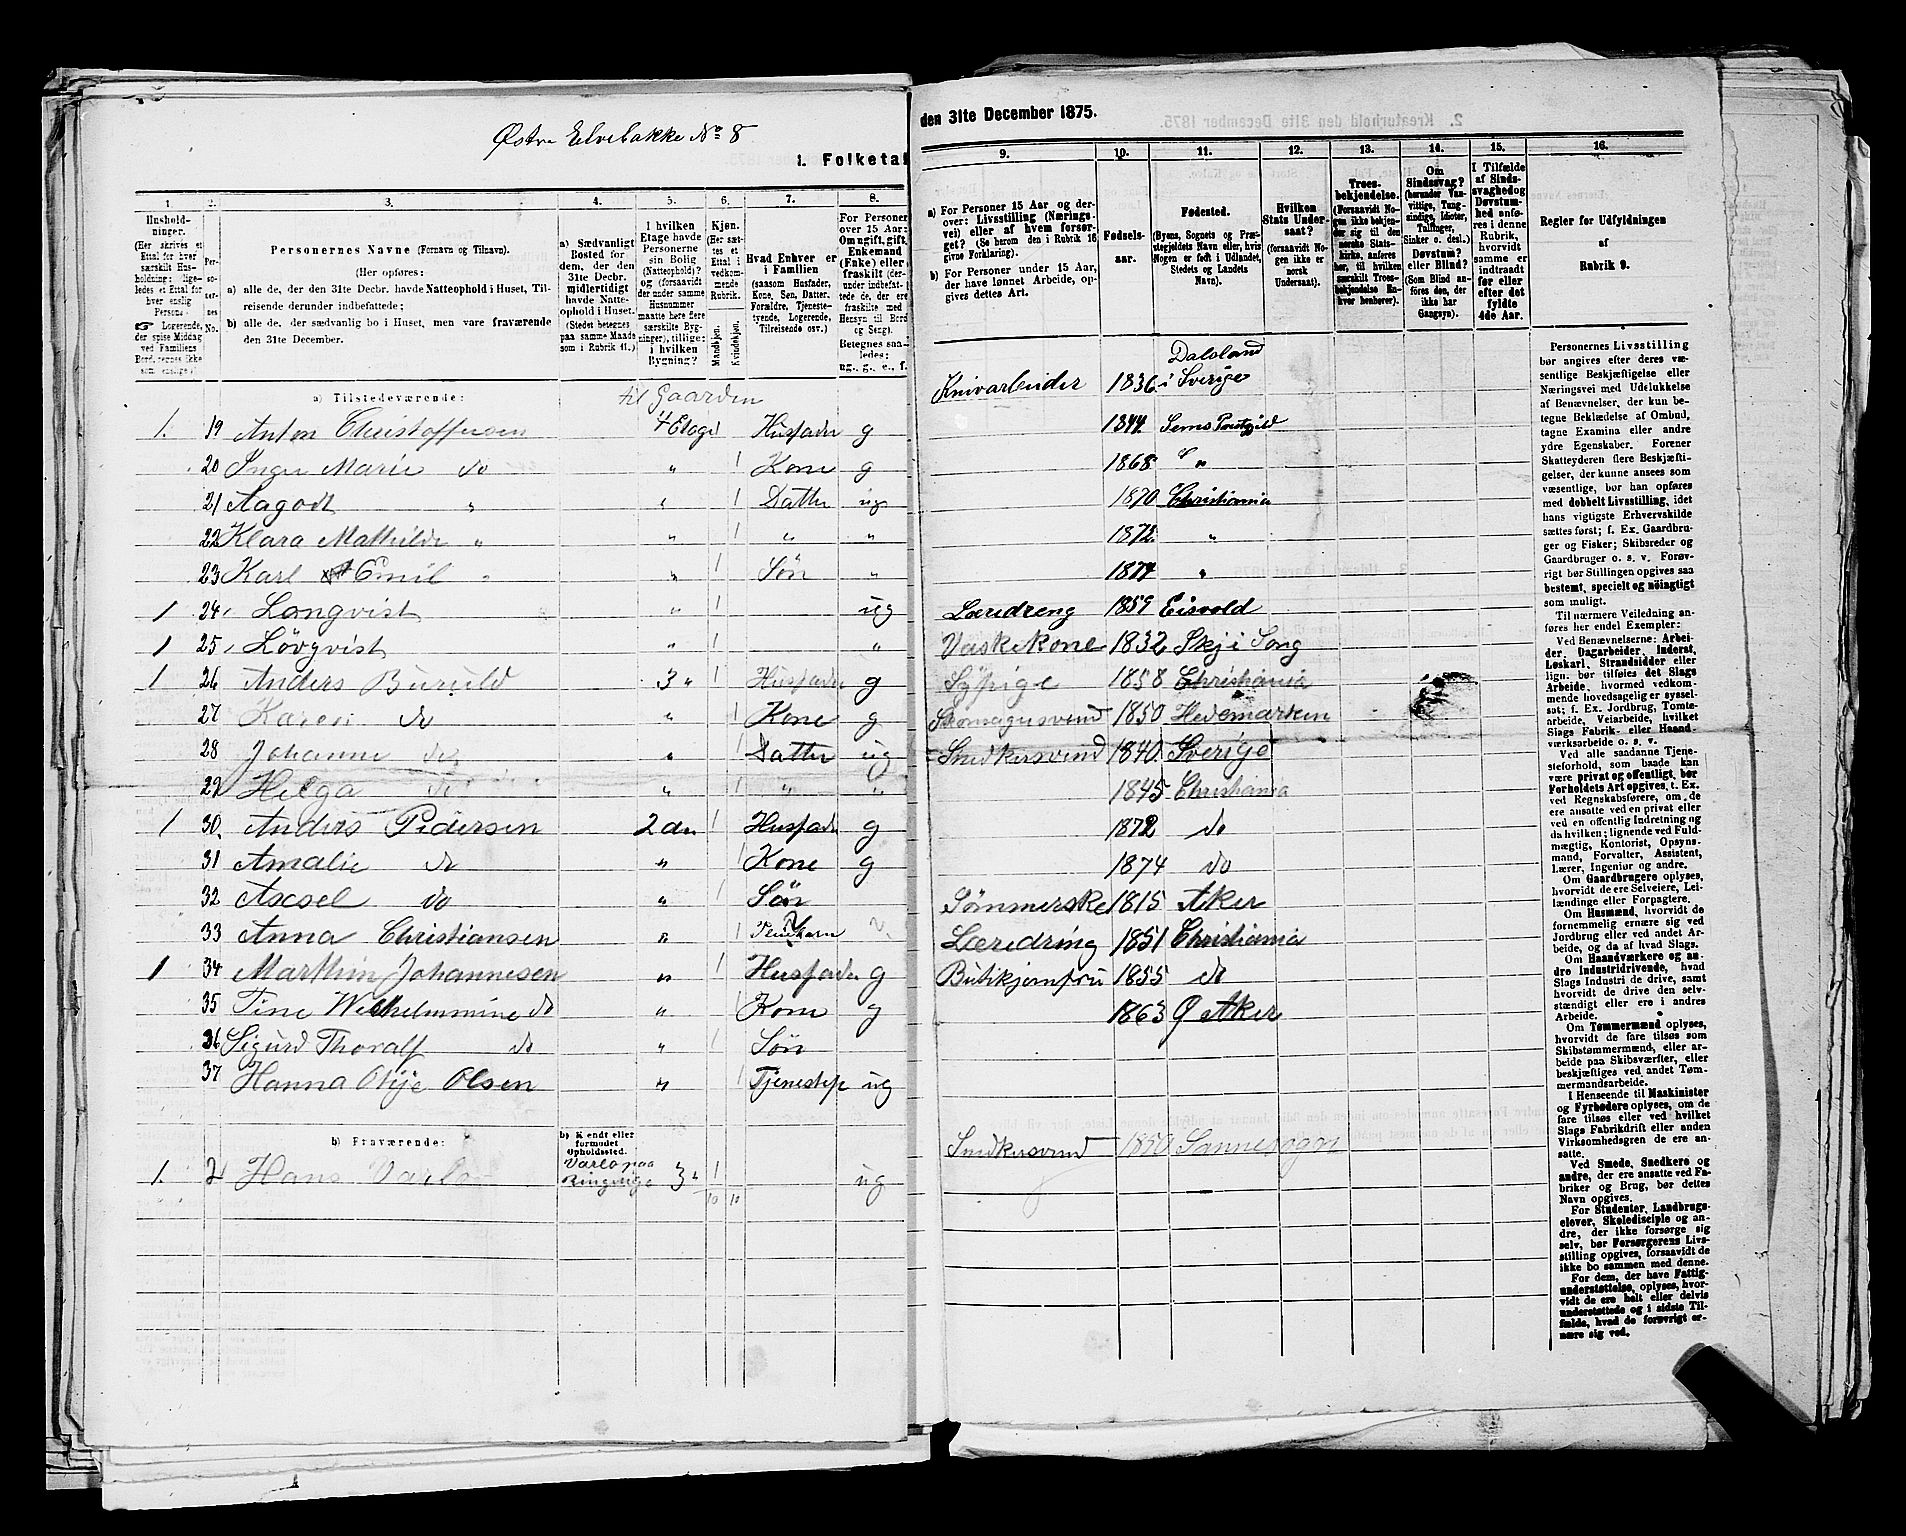 Østre Elvebakke No 8
1. Folketal
1. 2. 3. 4. 5. 6. 7. 8.
Husholdninger. (Her skrives et Ettal for hver særskilt Husholdning; ligeledes et Ettal for hver enslig Person. Logerende, der spise Middag ved Familiens Bord, regnes ikke som enslige.)
Personernes No.
Personernes Navne (Fornavn og Tilnavn).
(Her opføres:
a) alle de, der den 31te Decbr. havde Natteophold i Huset, Tilreisende derunder indbefattede;
b) alle de, der sædvanlig bo i Huset, men vare fraværende den 31te December.
a) Sædvanligt Bosted for dem, der den 31te Decbr. midlertidigt havde Natteophold i Huset. (Stedet betegnes paa samme Maade som i Rubrik 11.)
I hvilken Etage havde Personerne sin Bolig (Natteophold)? og (forsaavidt der under samme Husnummer maatte høre flere særskilte Bygninger), tillige: i hvilken Bygning?
Kjøn. (Her sættes et Ettal i vedkommende Rubrik.
Mandkjøn. Kvindekjøn.
Hvad Enhver er i Familien (saasom Husfader, Kone, Søn, Datter, Forældre, Tjenestetyende, Logerende, Tilreisende osv.)
For Personer over 15 Aar: Om gift, gift, Enkemand (Enke) eller fraskilt
a) Tilstedeværende:
til Gaarden
1. 19 Anton Christoffersen 4 Etage 1 Husfader g
20 Inger Marie do " 1 Kone g
21 Aagodt " " 1 Datter ug
22 Klara Mathilde " " 1 " "
23 Karl Emil " " 1 Søn "
1 24 Lonqvist " 1 ug
1 25 Lövqvist " "
1 26 Anders Buruld 3 " 1 Husfader g
27 Karen do " 1 Kone g
28 Johanne do " 1 Datter ug
29 Helga do " 1 " "
1 30. Anders Pedersen 2 den 1 Husfader g
31 Amalie do " 1 Kone g
32 Axsel do " 1 Søn
33 Anna Christiansen " 1
1 34 Marthin Johannesen " 1 Husfader g
35 Tine Wilhelmmine do " 1 Kone g
36 Sigurd Thoralf do " 1 Søn
37 Hanna Olsen " 1 ug
b) Fraværende:
b) Kjendt eller formodet Opholdssted.
1. 2 Hans Varlo Varlo paa Ringerige 3 " 1 ug
10 10
den 31te December 1875.
9. 10. 11. 12. 13. 14. 15. 16.
a) For Personer 15 Aar og derover: Livsstilling (Næringsvei) eller af hvem forsørget? (Se herom den i Rubrik 16 givne Forklaring).
b) For Personer under 15 Aar, der have lønnet Arbeide, opgives dettes Art.
Fødselsaar.
Fødested. (Byens, Sognets og Præstegjeldets Navn eller, hvis Nogen er født i Udlandet, Stedets og Landets Navn).
Hvilken Stats Undersaat? (forsaavidt Nogen ikke er norsk Undersaat).
Troesbekjendelse. (Forsaavidt Nogen ikke bekjender sig til den norske Statskirke, anføres her, til hvilken Troesbekjendelse Enhver henhører).
Om Sindssvag? (herunder Vanvittige, Tungsindige, Idioter, Tullinger, Sinker o. desl.) Døvstum? eller Blind? (Som Blind anføres den, der ikke har Gangsyn).
I Tilfælde af Sindssvaghed og Døvstumhed anføres i denne Rubrik, hvorvidt samme er indtraadt før eller efter det fyldte 4de Aar.
Regler for Udfyldningen af Rubrik 9.
Dalsland
Knivarbeider 1836 i Sverige
1844
1868 "
1870 Christiania
1872 "
1874 "
Læredreng 1859 Eisvold
Vaskekone 1832
Sypige 1858 Christiania
1850 Hedemarken
Snedkersvend 1840 Sverige
1845 Christiania
1872 do
1874 do
1815 Aker
Læredreng 1851 Christiania
Butikjomfru 1855 do
1863 Ø Aker
Snedkersvend 1850
Personernes Livsstilling bør angives efter deres væsentlige Beskjæftigelse eller Næringsvei med Udelukkelse af Benævnelser, der kun betegne Beklædelse af Ombud, tagne Examina eller andre ydre Egenskaber. Forener Skatteyderen flere Beskjæftigelser, der kunne ansees som væsentlige, bør han opføres med dobbelt Livsstilling, idet hans vigtigste Erhvervskilde sættes først; f. Ex. Gaardbruger og Fisker; Skibsreder og Gaardbruger o. s. v. Forøvrigt bør Stillingen opgives saa bestemt, specielt og nöiagtigt som muligt.
Til nærmere Veiledning anføres her endel Exempler:
Ved Benævnelserne: Arbeider, Dagarbeider, Inderst, Løskarl, Strandsidder eller lign. bør tilføies det Slags Arbeide, hvormed vedkommende hovedsagelig er sysselsat; f. Ex. Jordbrug, Tomtearbeide, Veiarbeide, hvilket Slags Fabrik- eller Haandværksarbeide o. s. v.
Ved alle saadanne Tjenesteforhold, som baade kan være privat og offentligt, bør Forholdets Art opgives, t. Ex. ved Regnskabsførere, om de ere ansatte ved en privat eller ved en offentlig Indretning og da hvilken; lignende ved Fuldmægtig, Kontorist, Opsynsmand, Forvalter, Assistent, Lærer, Ingeniør og andre.
Om Gaardbrugere oplyses, hvorvidt de ere Selveiere, Leilændinge eller Forpagtere.
Om Husmænd, hvorvidt de fornemmelig ernære sig ved Jordbrug eller ved andet Arbeide, og da af hvad Slags.
Om Haandværkere og andre Industridrivende, hvad Slags Industri de drive, samt hvorvidt de drive den selvstændigt eller ere i andres Arbeide.
Om Tømmermænd oplyses, hvorvidt de fare tilsøs som Skibstømmermænd, eller arbeide paa Skibsværfter, eller beskjæftiges ved andet Tømmermandsarbeide.
I Henseende til Maskinister og Fyrbødere oplyses, om de fare tilsøs eller ved hvilket Slags Fabrikdrift eller anden Virksomhedsgren de ere ansatte.
Ved Smede, Snedkere og andre, der ere ansatte ved Fabriker og Brug, bør dettes Navn opgives.
For Studenter, Landbrugselever, Skoledisciple og andre, der ikke forsørge sig selv, bør Forsørgerens Livsstilling opgives, forsaavidt de ikke bo sammen med denne.
For dem, der have Fattigunderstøttelse, oplyses, hvorvidt de ere helt eller delvis understøttede og i sidste Tilfælde, hvad de forøvrigt ernære sig ved.